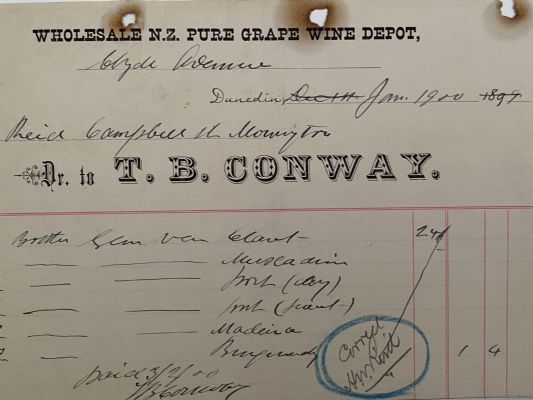 WHOLESALE N.Z. PURE GRAPE WINE DEPOT,
Clyde Avenue
Dunedin, Dec 11 Jan. 1900 1899
Reid Campbell St Mornington
Dr. to T. B. CONWAY.
Claret 24/
Muscadine
Port (dry)
Port (sweet)
Madeira
Burgundy 1 4
Correct
Paid 3/2/00
TBConway